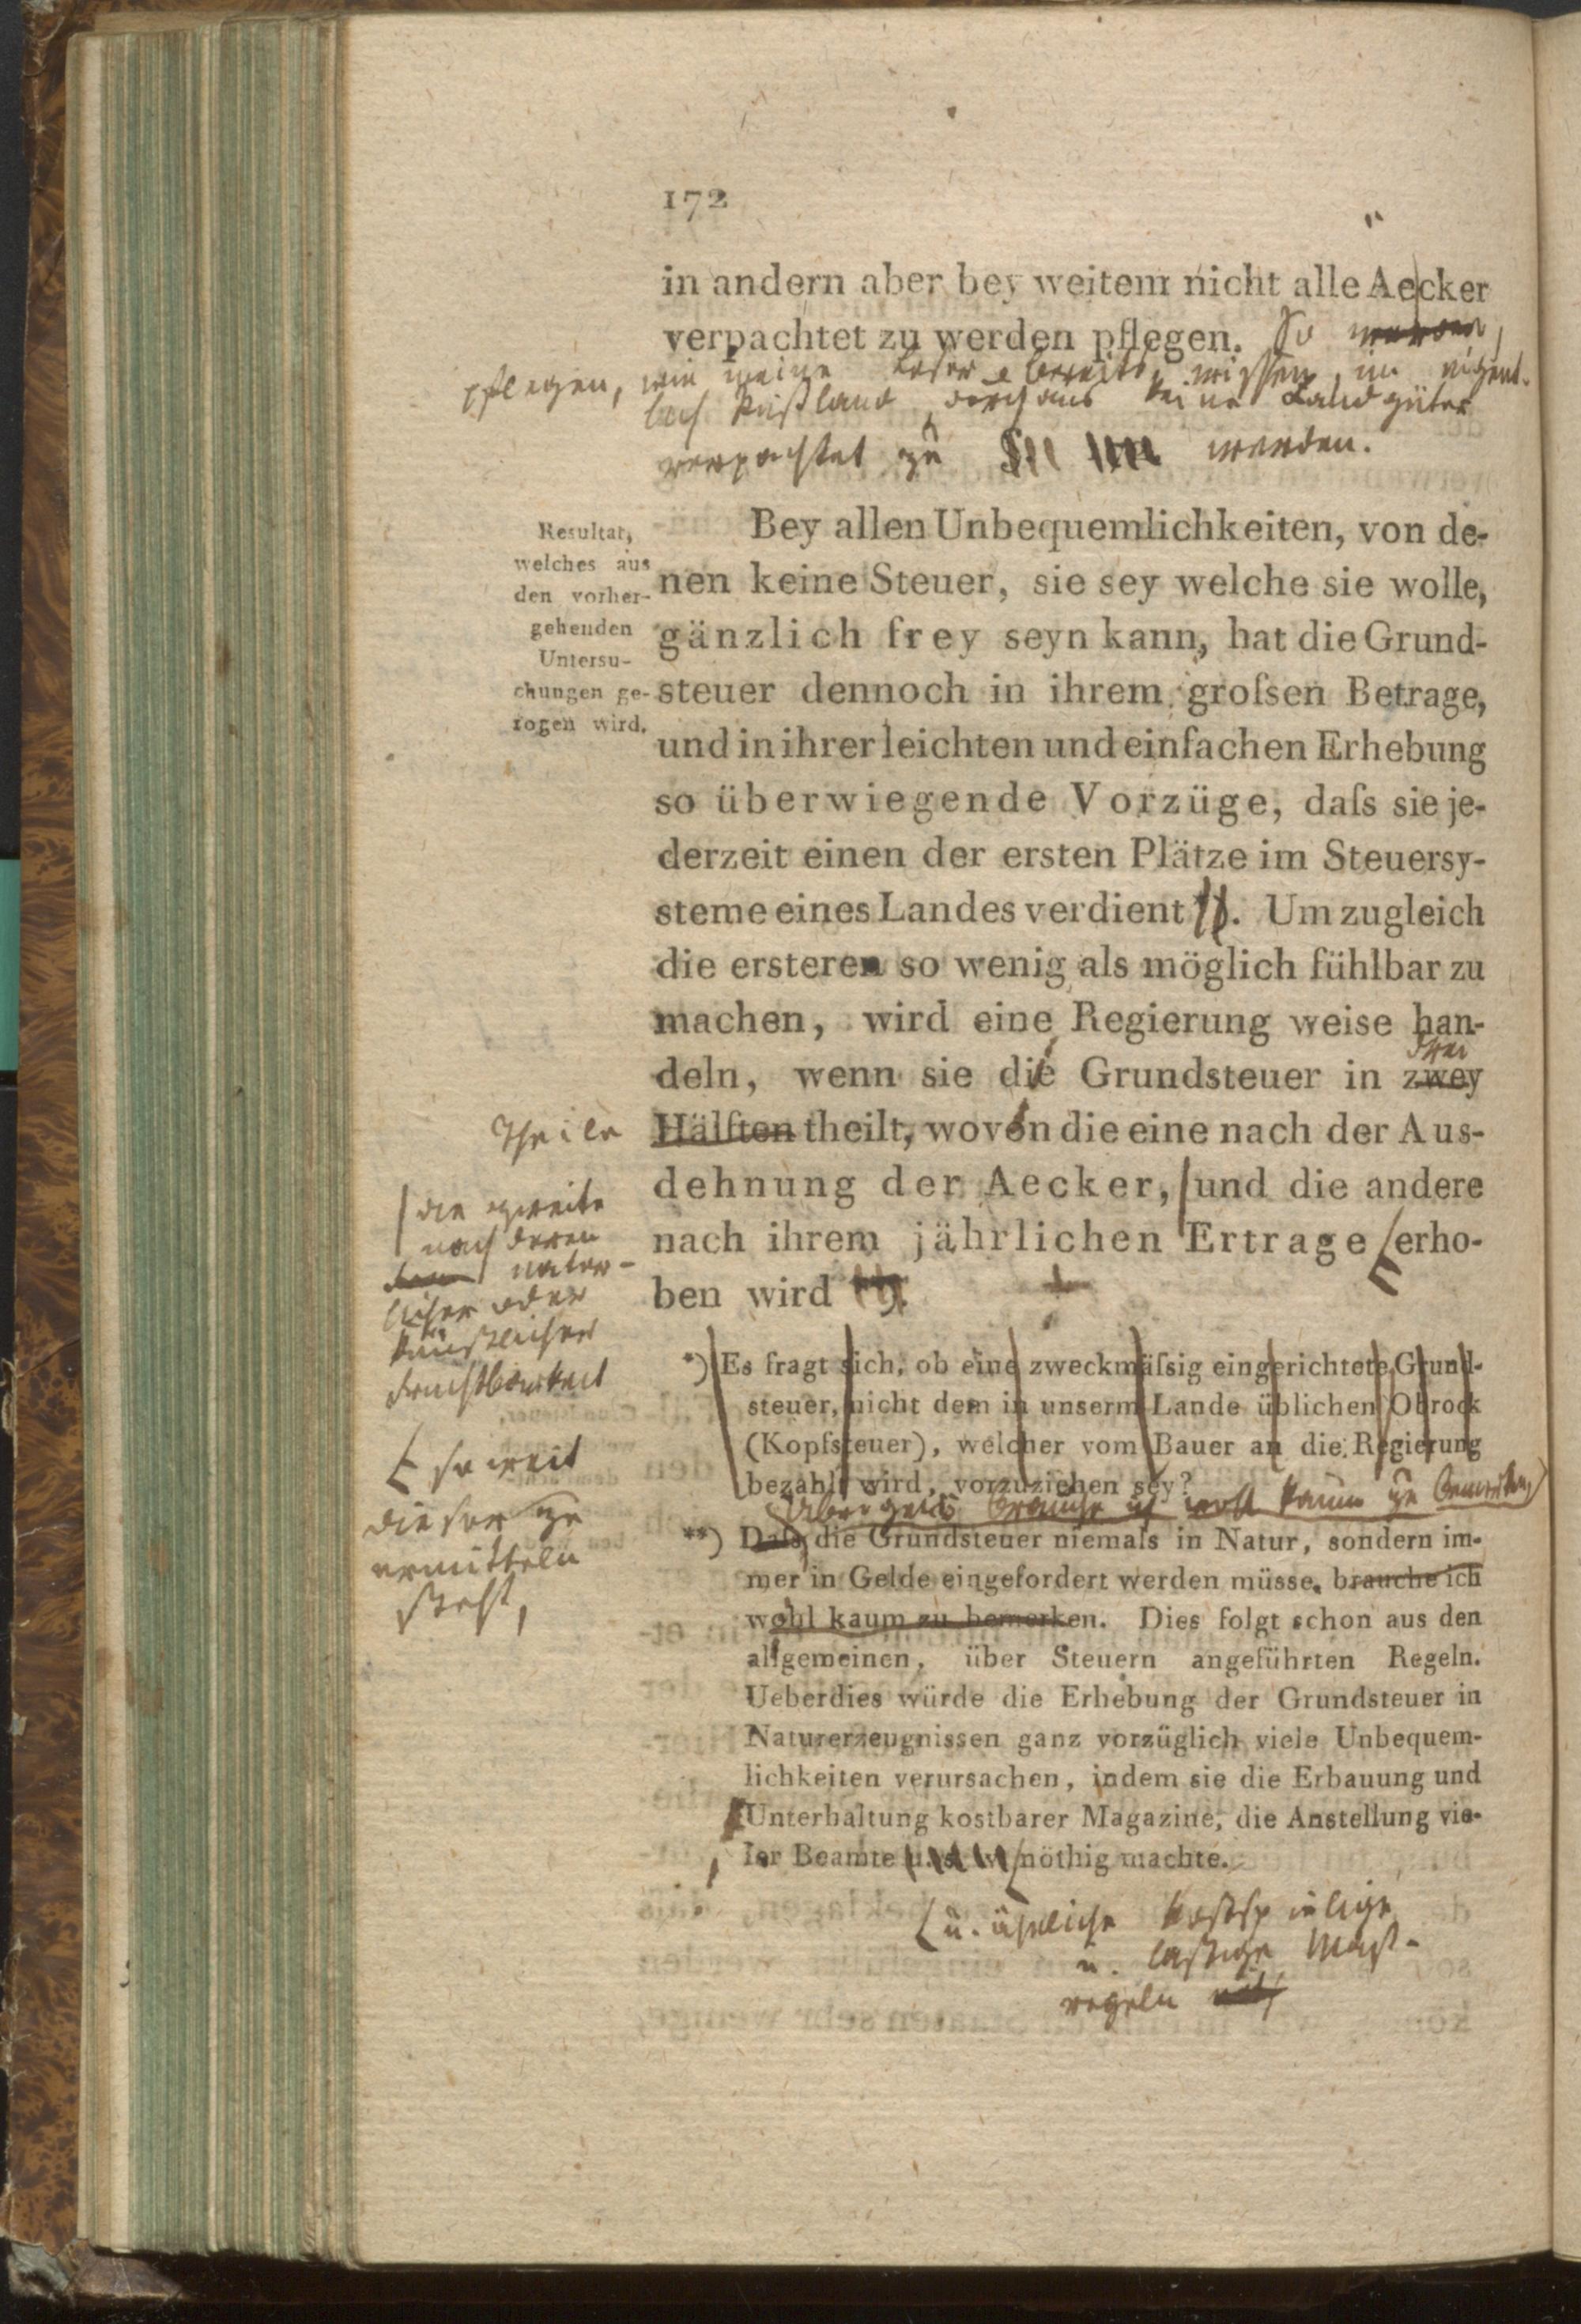 172
in andern aber bey weitem nicht alle Aecker
verpachtet zu werden pflegen. So werden,
pflegen, wie meine Leser bereits wissen, im eigent-
lich Rußland durchaus keine Landgüter
verpachtet zu werden.
Resultat,
welches aus
den vorher-
gehenden
Untersu-
chungen ge-
zogen wird.
Bey allen Unbequemlichkeiten, von de-
nen keine Steuer, sie sey welche sie wolle,
gänzlich frey seyn kann, hat die Grund-
steuer dennoch in ihrem groſsen Betrage,
und in ihrer leichten und einfachen Erhebung
so überwiegende Vorzüge, daſs sie je-
derzeit einen der ersten Plätze im Steuersy-
steme eines Landes verdient *). Um zugleich
die ersteren so wenig als möglich fühlbar zu
machen, wird eine Regierung weise han-
drei
deln, wenn sie die Grundsteuer in zwey
Theile
Hälften theilt, wovon die eine nach der Aus-
dehnung der Aecker, und die andere
nach ihrem jährlichen Ertrage erho-
ben wird **).
die zweite
nach deren
natür-
licher oder
künstlicher
Fruchtbarkeit
soweit
dieser zu
ermitteln
steht,
*) Es fragt sich, ob eine zweckmäſsig eingerichtete Grund-
steuer, nicht dem in unserm Lande üblichen Obrock
(Kopfsteuer), welcher vom Bauer an die Regierung
bezahlt wird, vorzuziehen sey?
Übrigens brauche ich wohl kaum zu bemerken,
**) Daſs die Grundsteuer niemals in Natur, sondern im-
mer in Gelde eingefordert werden müsse, brauche ich
wohl kaum zu bemerken. Dies folgt schon aus den
allgemeinen, über Steuern angeführten Regeln.
Ueberdies würde die Erhebung der Grundsteuer in
Naturerzeugnissen ganz vorzüglich viele Unbequem-
lichkeiten verursachen, indem sie die Erbauung und
Unterhaltung kostbarer Magazine, die Anstellung vie-
ler Beamte u. s. w. nöthig machte.
u. ähnliche kostspielige
u. lästige Maß-
regeln